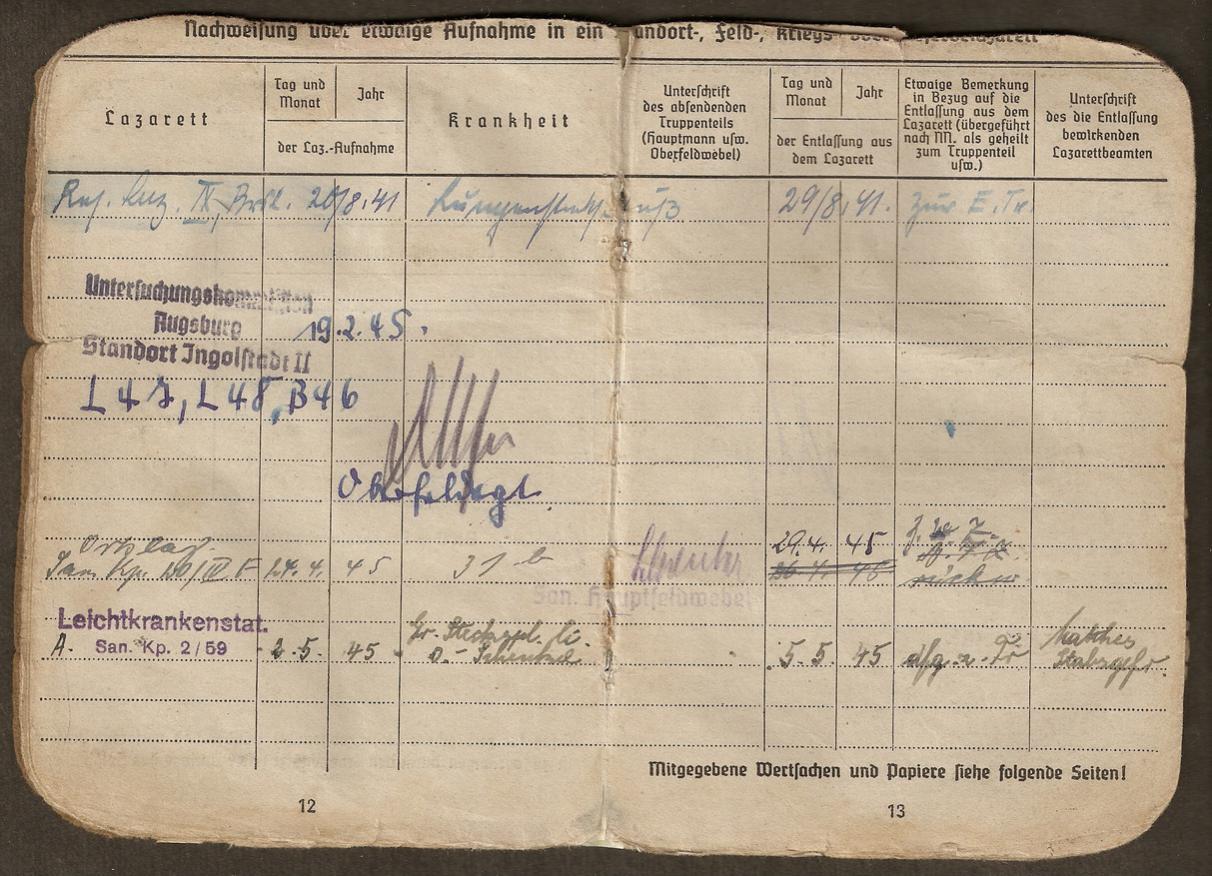 Nachweisung über etwaige Aufnahme in ein Standort-, Feld-, Kriegs- oder
Lazarett
Tag und Monat
Jahr
der Laz.-Aufnahme
Krankheit
Unterschrift
des absendenden
Truppenteils
(Hauptmann usw.
Oberfeldwebel)
Tag und Monat
Jahr
der Entlassung aus
dem Lazarett
Etwaige Bemerkung
in Bezug auf die
Entlassung aus dem
Lazarett (übergeführt
nach NN. als geheilt
zum Truppenteil
usw.)
Unterschrift
des die Entlassung
bewirkenden
Lazarettbeamten
Res. Laz. IX, 20/8.41 29/8.41. zur E. Tr.
Untersuchungskommission
Augsburg
Standort Ingolstadt II
19.2.45.
L 47, L 48, B 46
29.4. 45
San. Kp. 24.4. 45 31 b 26.4. 45 rückw.
San. Hauptfeldwebel
Leichtkrankenstat.
San. Kp. 2/59
A. 2.5. 45 5.5. 45 dfg. z. Tr.
Stabsgefr.
Mitgegebene Wertsachen und Papiere siehe folgende Seiten!
12
13